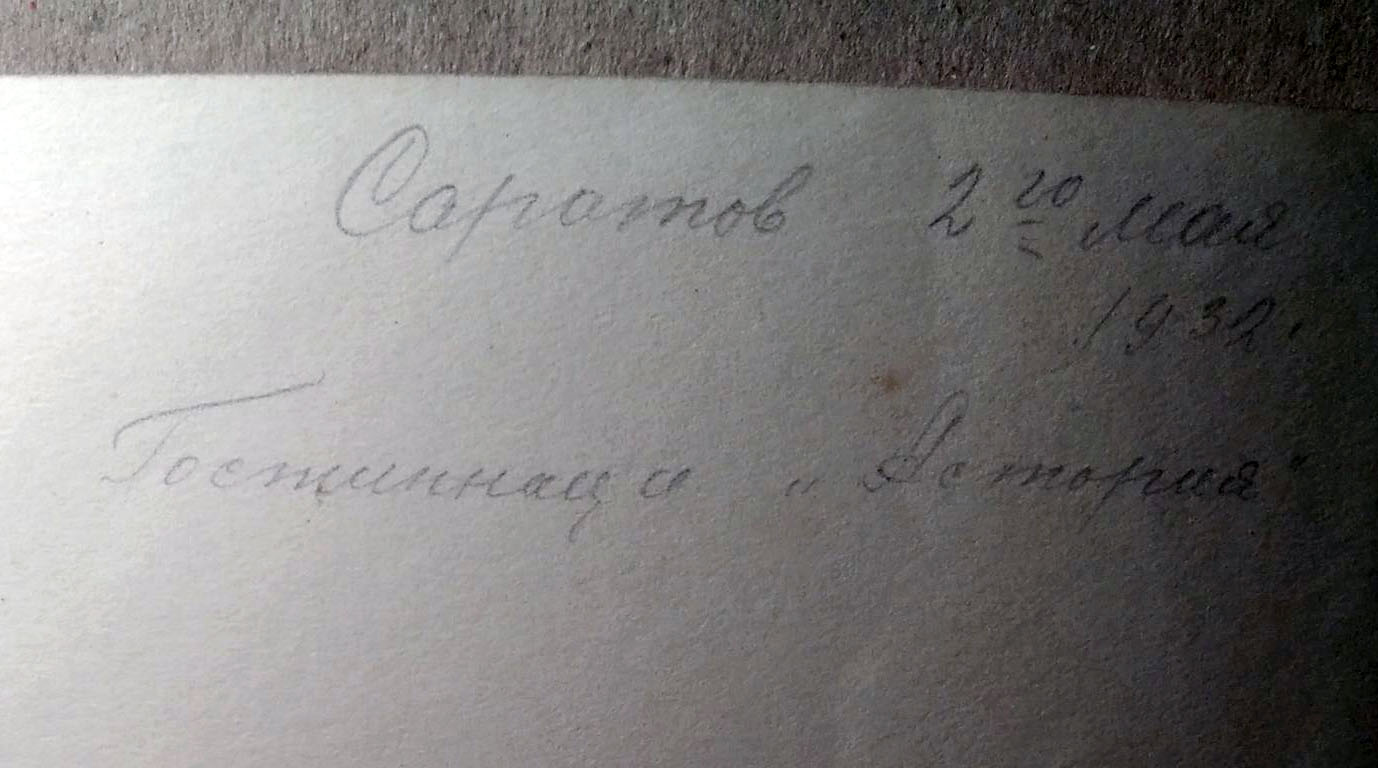 Саратов 2го мая
1932.
Гостинница „Астория"